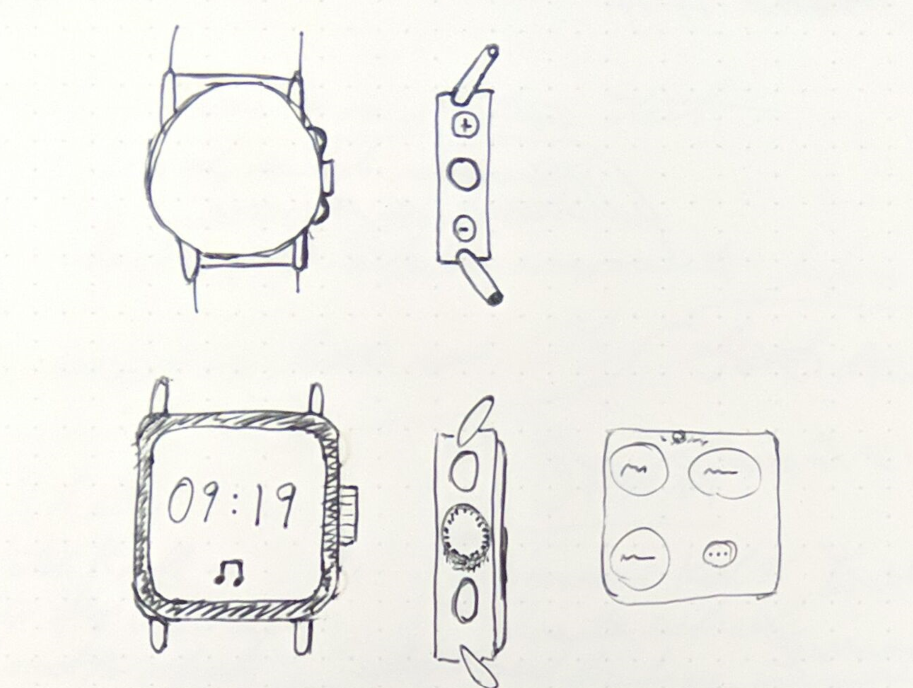 +
-
09:19